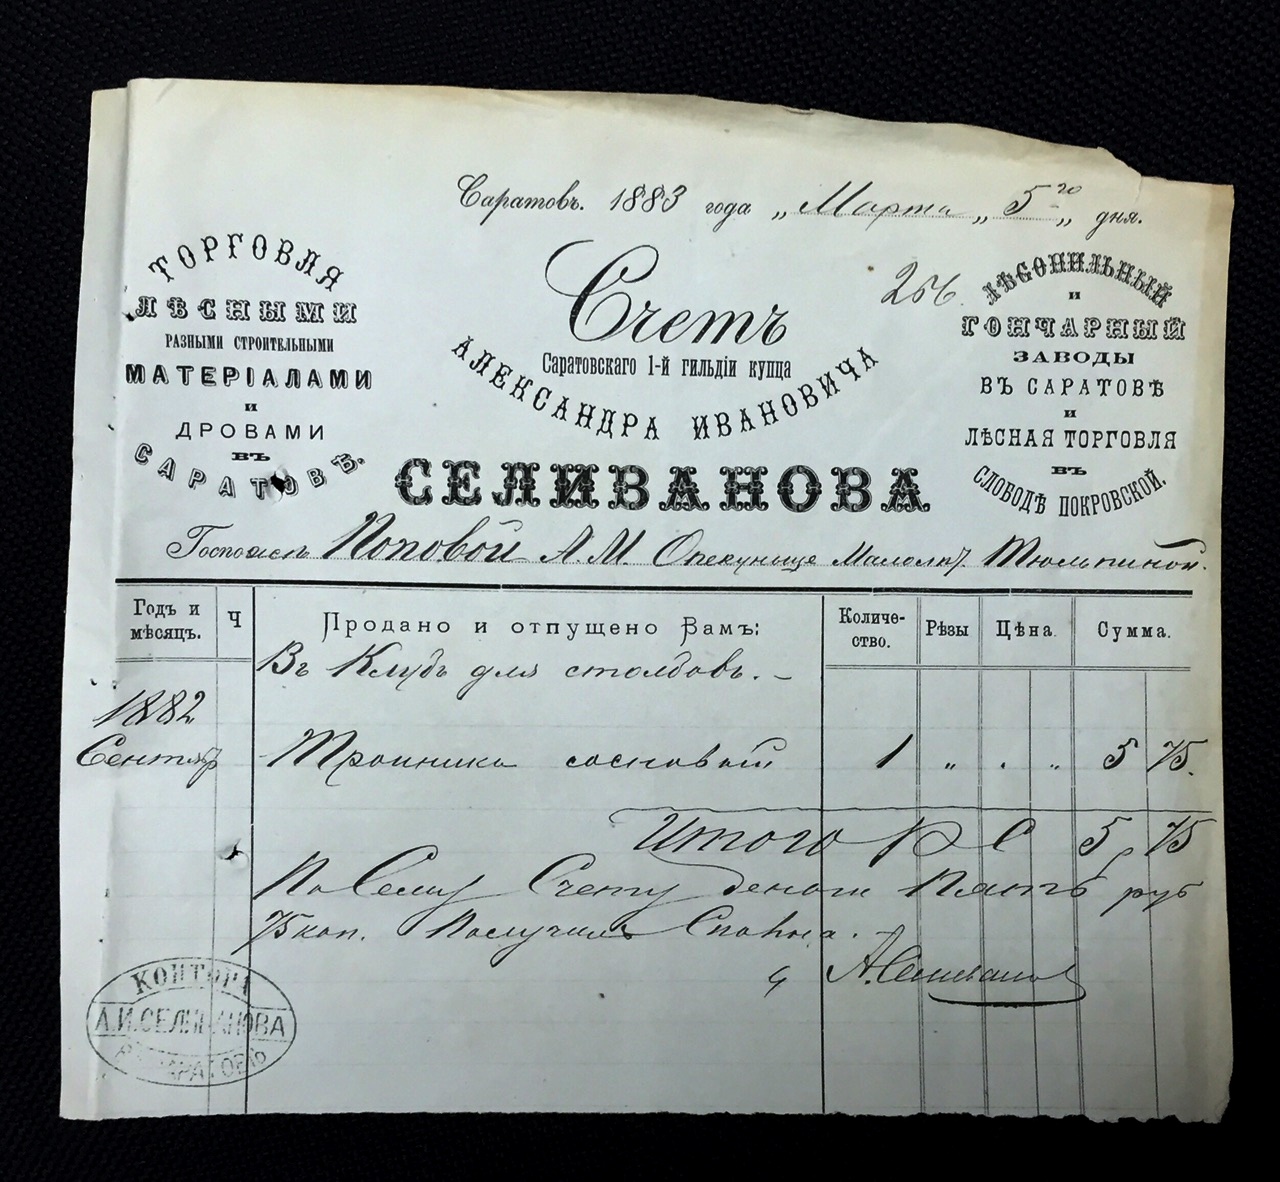 Саратовъ. 1883 года „Марта„ 5го „ дня.
256.
ТОРГОВЛЯ
ЛѢСНЫМИ
РАЗНЫМИ СТРОИТЕЛЬНЫМИ
МАТЕРІАЛАМИ
И
ДРОВАМИ
ВЪ
САРАТОВѢ.
Счетъ
Саратовскаго 1-й гильдіи купца
АЛЕКСАНДРА ИВАНОВИЧА
СЕЛИВАНОВА
ЛѢСОПИЛЬНЫЙ
И
ГОНЧАРНЫЙ
ЗАВОДЫ
ВЪ САРАТОВѢ
И
ЛѢСНАЯ ТОРГОВЛЯ
ВЪ
СЛОБОДѢ ПОКРОВСКОЙ.
Поповой А. М. Опекунше Малолѣт.
Годъ и мѣсяцъ. Ч Продано и отпущено Вамъ: Количество. Рѣзы Цѣна. Сумма.
Въ Клубъ для столбовъ. –
1882
Сентябр Троиника сосновый 1 „ . „ 5 75.
Итого Р С 5 75
По Сему Счету деньги Пять руб
75 коп. Получилъ Сполна.
А. Селиванов
КОНТОРА
А.И.СЕЛИВАНОВА
ВЪ САРАТОВѢ